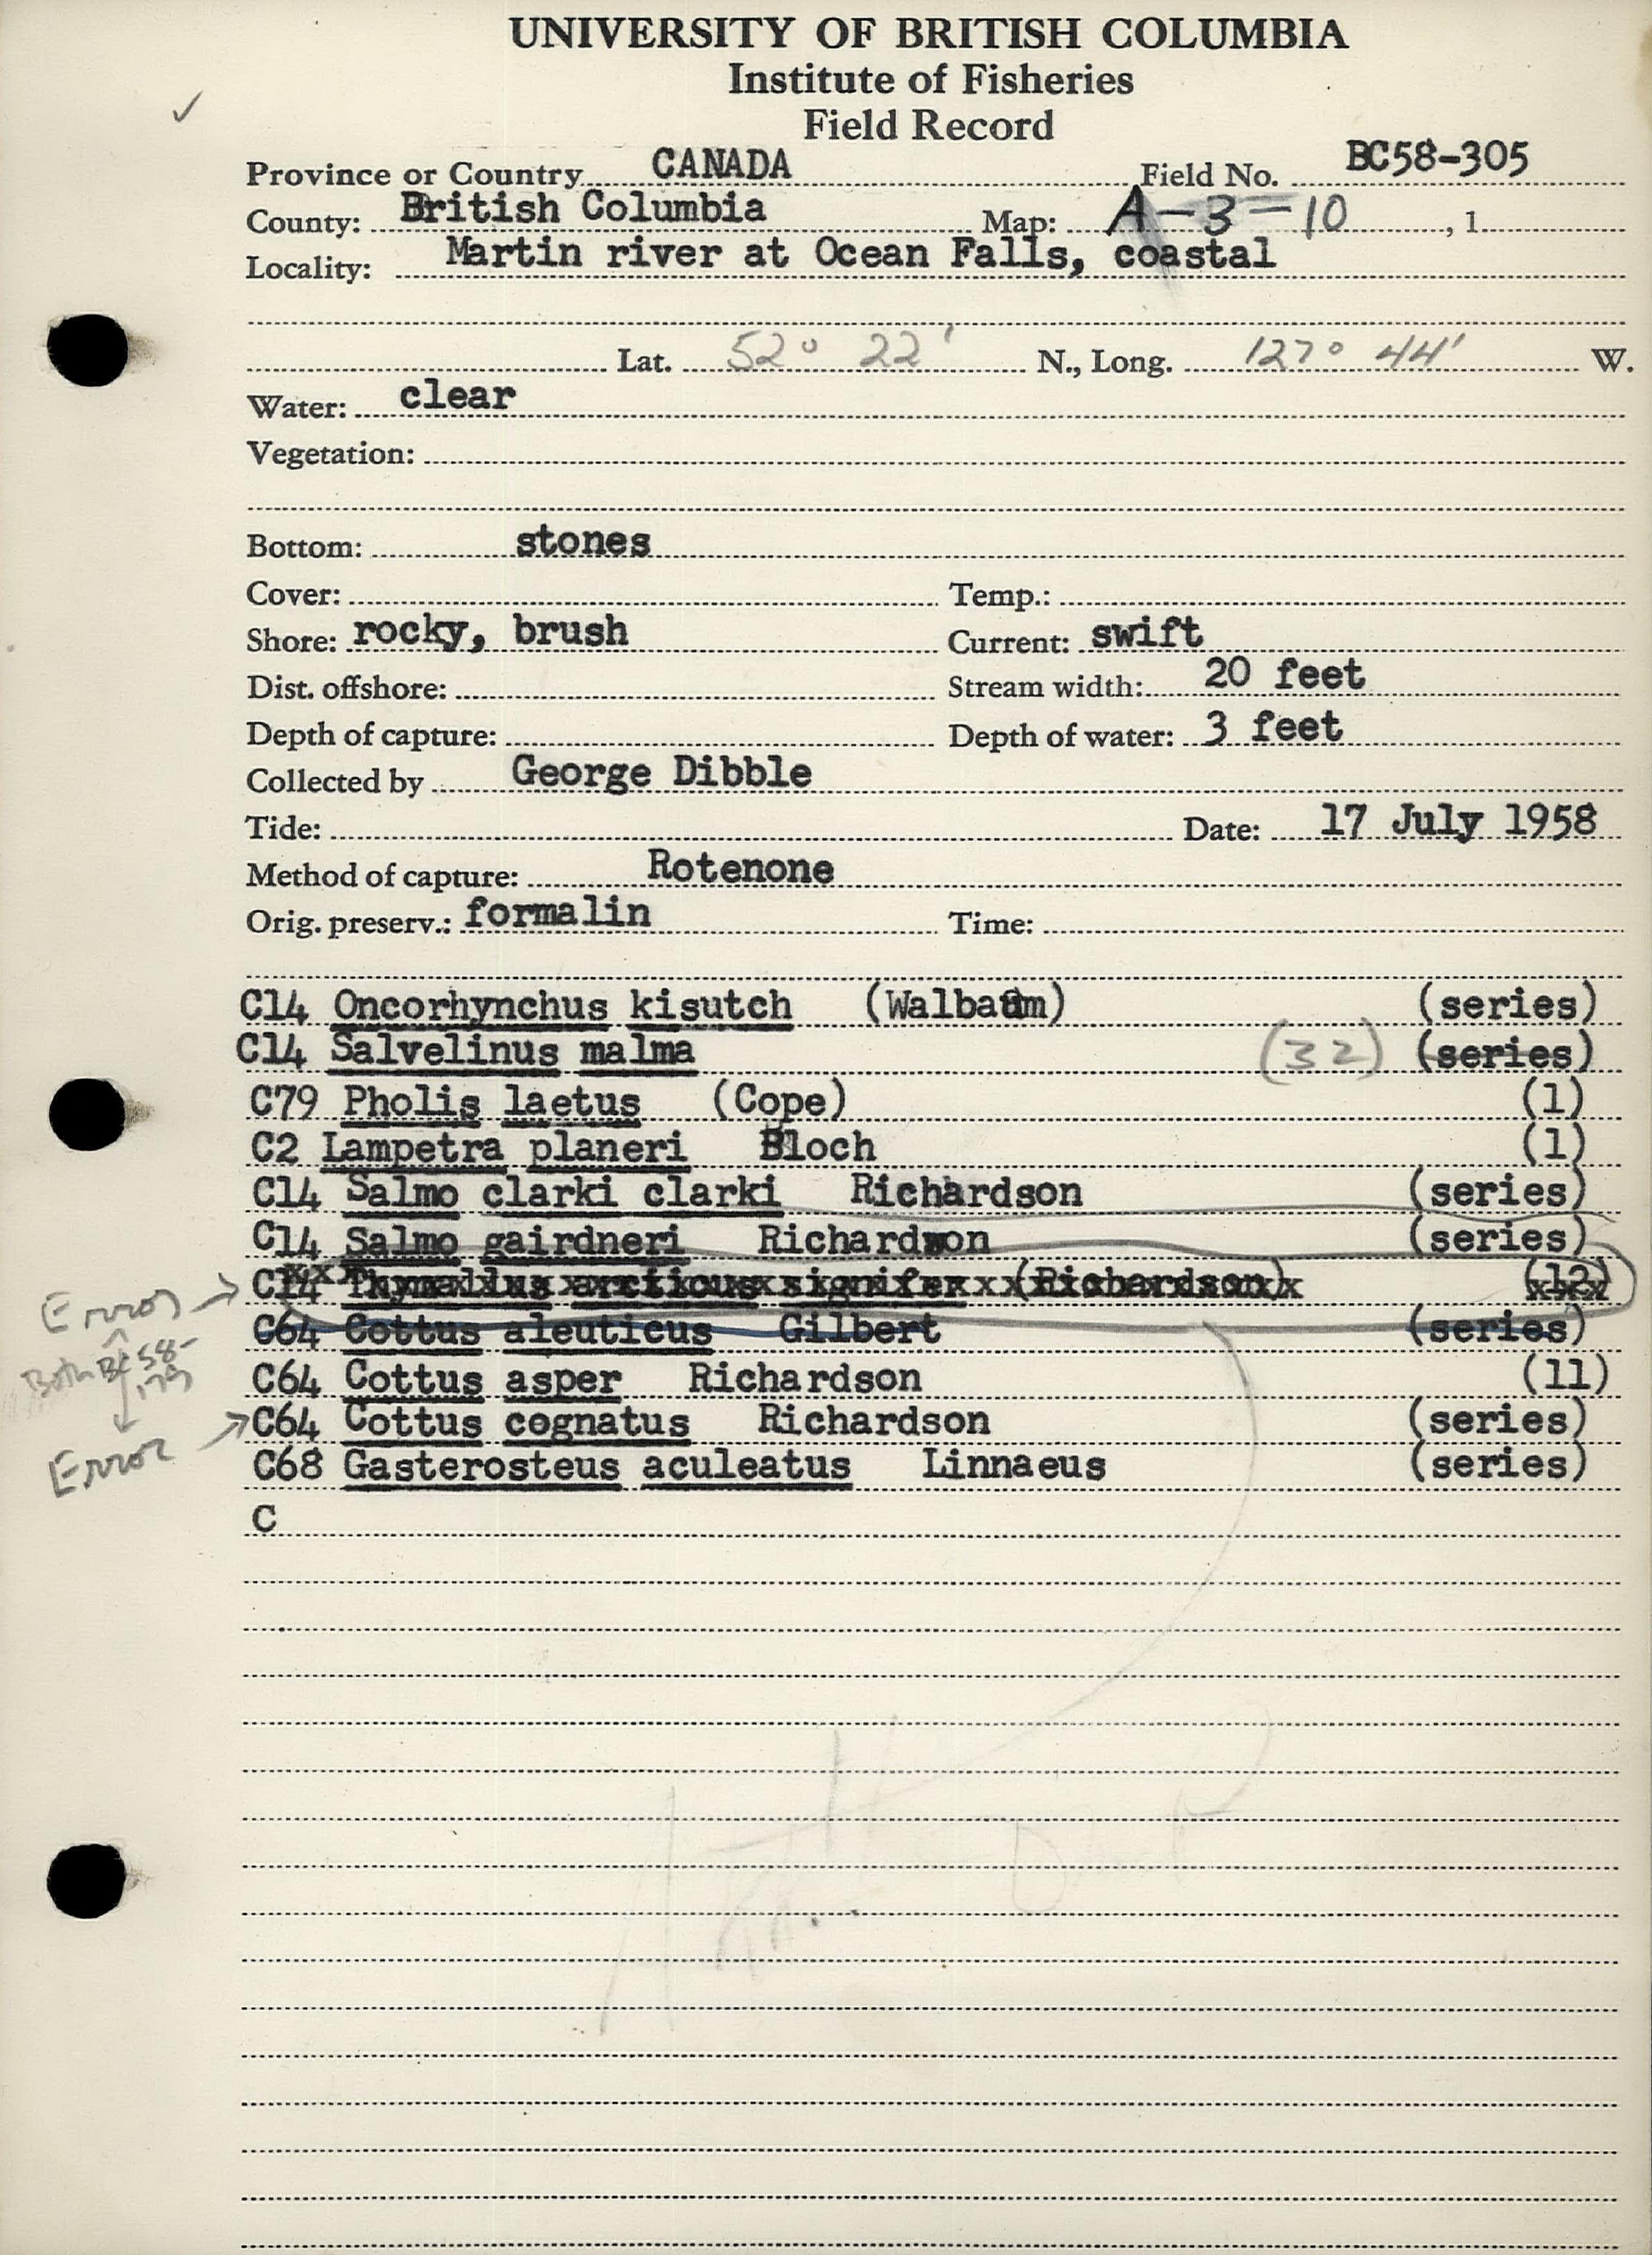 UNIVERSITY OF BRITISH COLUMBIA
Institute of Fisheries
Field Record
✓
Province or Country CANADA Field No. BC58-305
County: British Columbia Map: A-3-10, 1.
Locality: Martin river at Ocean Falls, coastal
Lat. 52° 22' N., Long. 127° 44' W.
Water: clear
Vegetation:
Bottom: stones
Cover: Temp.:
Shore: rocky, brush Current: swift
Dist. offshore: Stream width: 20 feet
Depth of capture: Depth of water: 3 feet
Collected by George Dibble
Tide: Date: 17 July 1958
Method of capture: Rotenone
Orig. preserv.: formalin Time:
C14 Oncorhynchus kisutch (Walbaum) (series)
C14 Salvelinus malma (32) (series)
C79 Pholis laetus (Cope) (1)
C2 Lampetra planeri Bloch (1)
C14 Salmo clarki clarki Richardson (series)
C14 Salmo gairdneri Richardson (series)
Error → C14 Thymallus arcticus signifer (Richardson) (12)
C64 Cottus aleuticus Gilbert (series)
Both BC58-
C64 Cottus asper Richardson (11)
Error → C64 Cottus cognatus Richardson (series)
C68 Gasterosteus aculeatus Linnaeus (series)
C